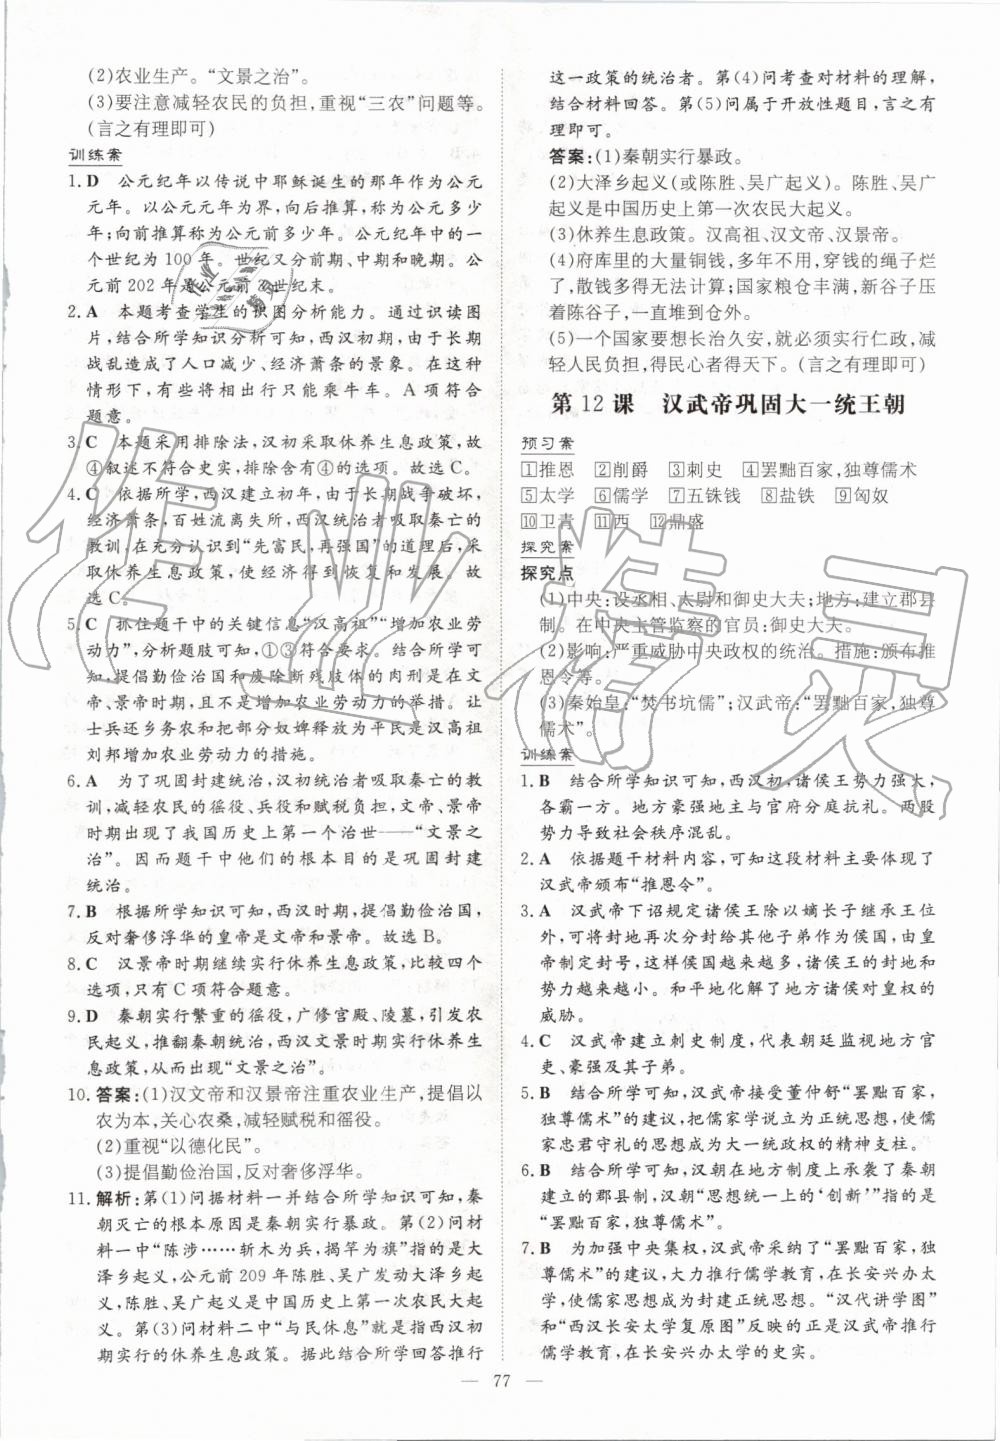 (2)农业生产。“文景之治”。
(3)要注意减轻农民的负担，重视“三农”问题等。
(言之有理即可)
训练案
1. D 公元纪年以传说中耶稣诞生的那年作为公元
元年。以公元元年为界，向后推算，称为公元多少
年；向前推算称为公元前多少年。公元纪年中的一
个世纪为 100 年。世纪又分前期、中期和晚期。公
元前 202 年是公元前 3 世纪末。
2. A 本题考查学生的识图分析能力。通过识读图
片，结合所学知识分析可知，西汉初期，由于长期
战乱造成了人口减少、经济萧条的景象。在这种
情形下，有些将相出行只能乘牛车。A 项符合
题意。
3. C 本题采用排除法，汉初采取休养生息政策，故
④叙述不符合史实，排除含有④的选项。故选 C。
4. C 依据所学，西汉建立初年，由于长期战争破坏，
经济萧条，百姓流离失所，西汉统治者吸取秦亡的
教训，在充分认识到“先富民，再强国”的道理后，采
取休养生息政策，使经济得到恢复和发展。故
选 C。
5. C 抓住题干中的关键信息“汉高祖”“增加农业劳
动力”，分析题肢可知，①③符合要求。结合所学可
知，提倡勤俭治国和废除断残肢体的肉刑是在文
帝、景帝时期，且不是增加农业劳动力的措施。让
士兵还乡务农和把部分奴婢释放为平民是汉高祖
刘邦增加农业劳动力的措施。
6. A 为了巩固封建统治，汉初统治者吸取秦亡的教
训，减轻农民的徭役、兵役和赋税负担，文帝、景帝
时期出现了我国历史上第一个治世——“文景之
治”。因而题干中他们的根本目的是巩固封建
统治。
7. B 根据所学知识可知，西汉时期，提倡勤俭治国，
反对奢侈浮华的皇帝是文帝和景帝。故选 B。
8. C 汉景帝时期继续实行休养生息政策，比较四个
选项，只有 C 项符合题意。
9. D 秦朝实行繁重的徭役，广修宫殿、陵墓，引发农
民起义，推翻秦朝统治，西汉文景时期实行休养生
息政策，从而出现“文景之治”。
10. 答案：(1)汉文帝和汉景帝注重农业生产，提倡以
农为本，关心农桑，减轻赋税和徭役。
(2)重视“以德化民”。
(3)提倡勤俭治国，反对奢侈浮华。
11. 解析：第(1)问据材料一并结合所学知识可知，秦
朝灭亡的根本原因是秦朝实行暴政。第(2)问材
料一中“陈涉……斩木为兵，揭竿为旗”指的是大
泽乡起义，公元前 209 年陈胜、吴广发动大泽乡起
义，陈胜、吴广起义是中国历史上第一次农民大起
义。第(3)问材料二中“与民休息”指的是西汉初
期实行的休养生息政策。据此结合所学回答推行
这一政策的统治者。第(4)问考查对材料的理解，
结合材料回答。第(5)问属于开放性题目，言之有
理即可。
答案：(1)秦朝实行暴政。
(2)大泽乡起义(或陈胜、吴广起义)。陈胜、吴广
起义是中国历史上第一次农民大起义。
(3)休养生息政策。汉高祖、汉文帝、汉景帝。
(4)府库里的大量铜钱，多年不用，穿钱的绳子烂
了，散钱多得无法计算；国家粮仓丰满，新谷子压
着陈谷子，一直堆到仓外。
(5)一个国家要想长治久安，就必须实行仁政，减
轻人民负担，得民心者得天下。(言之有理即可)
第 12 课 汉武帝巩固大一统王朝
预习案
①推恩 ②削爵 ③刺史 ④罢黜百家，独尊儒术
⑤太学 ⑥儒学 ⑦五铢钱 ⑧盐铁 ⑨匈奴
⑩卫青 ⑪西 ⑫鼎盛
探究案
探究点
(1)中央：设丞相、太尉和御史大夫；地方：建立郡县
制。在中央主管监察的官员：御史大夫。
(2)影响：严重威胁中央政权的统治。措施：颁布推
恩令等。
(3)秦始皇：“焚书坑儒”；汉武帝：“罢黜百家，独尊
儒术”。
训练案
1. B 结合所学知识可知，西汉初，诸侯王势力强大，
各霸一方。地方豪强地主与官府分庭抗礼。两股
势力导致社会秩序混乱。
2. A 依据题干材料内容，可知这段材料主要体现了
汉武帝颁布“推恩令”。
3. A 汉武帝下诏规定诸侯王除以嫡长子继承王位
外，可将封地再次分封给其他子弟作为侯国，由皇
帝制定封号，这样侯国越来越多，诸侯王的封地和
势力越来越小。和平地化解了地方诸侯对皇权的
威胁。
4. C 汉武帝建立刺史制度，代表朝廷监视地方官
吏、豪强及其子弟。
5. B 结合所学可知，汉武帝接受董仲舒“罢黜百家，
独尊儒术”的建议，把儒家学说立为正统思想，使儒
家忠君守礼的思想成为大一统政权的精神支柱。
6. B 结合所学可知，汉朝在政治上继承了秦朝
建立的郡县制，汉朝“思想统一上的‘创新’”指的是
“罢黜百家，独尊儒术”。
7. B 为加强中央集权，汉武帝采纳了“罢黜百家，独
尊儒术”的建议，大力推行儒学教育，在长安兴办太
学，使儒家思想成为封建正统思想。“汉代讲学图”
和“西汉长安太学复原图”反映的正是汉武帝推行
儒学教育，在长安兴办太学的史实。
— 77 —
作业精灵